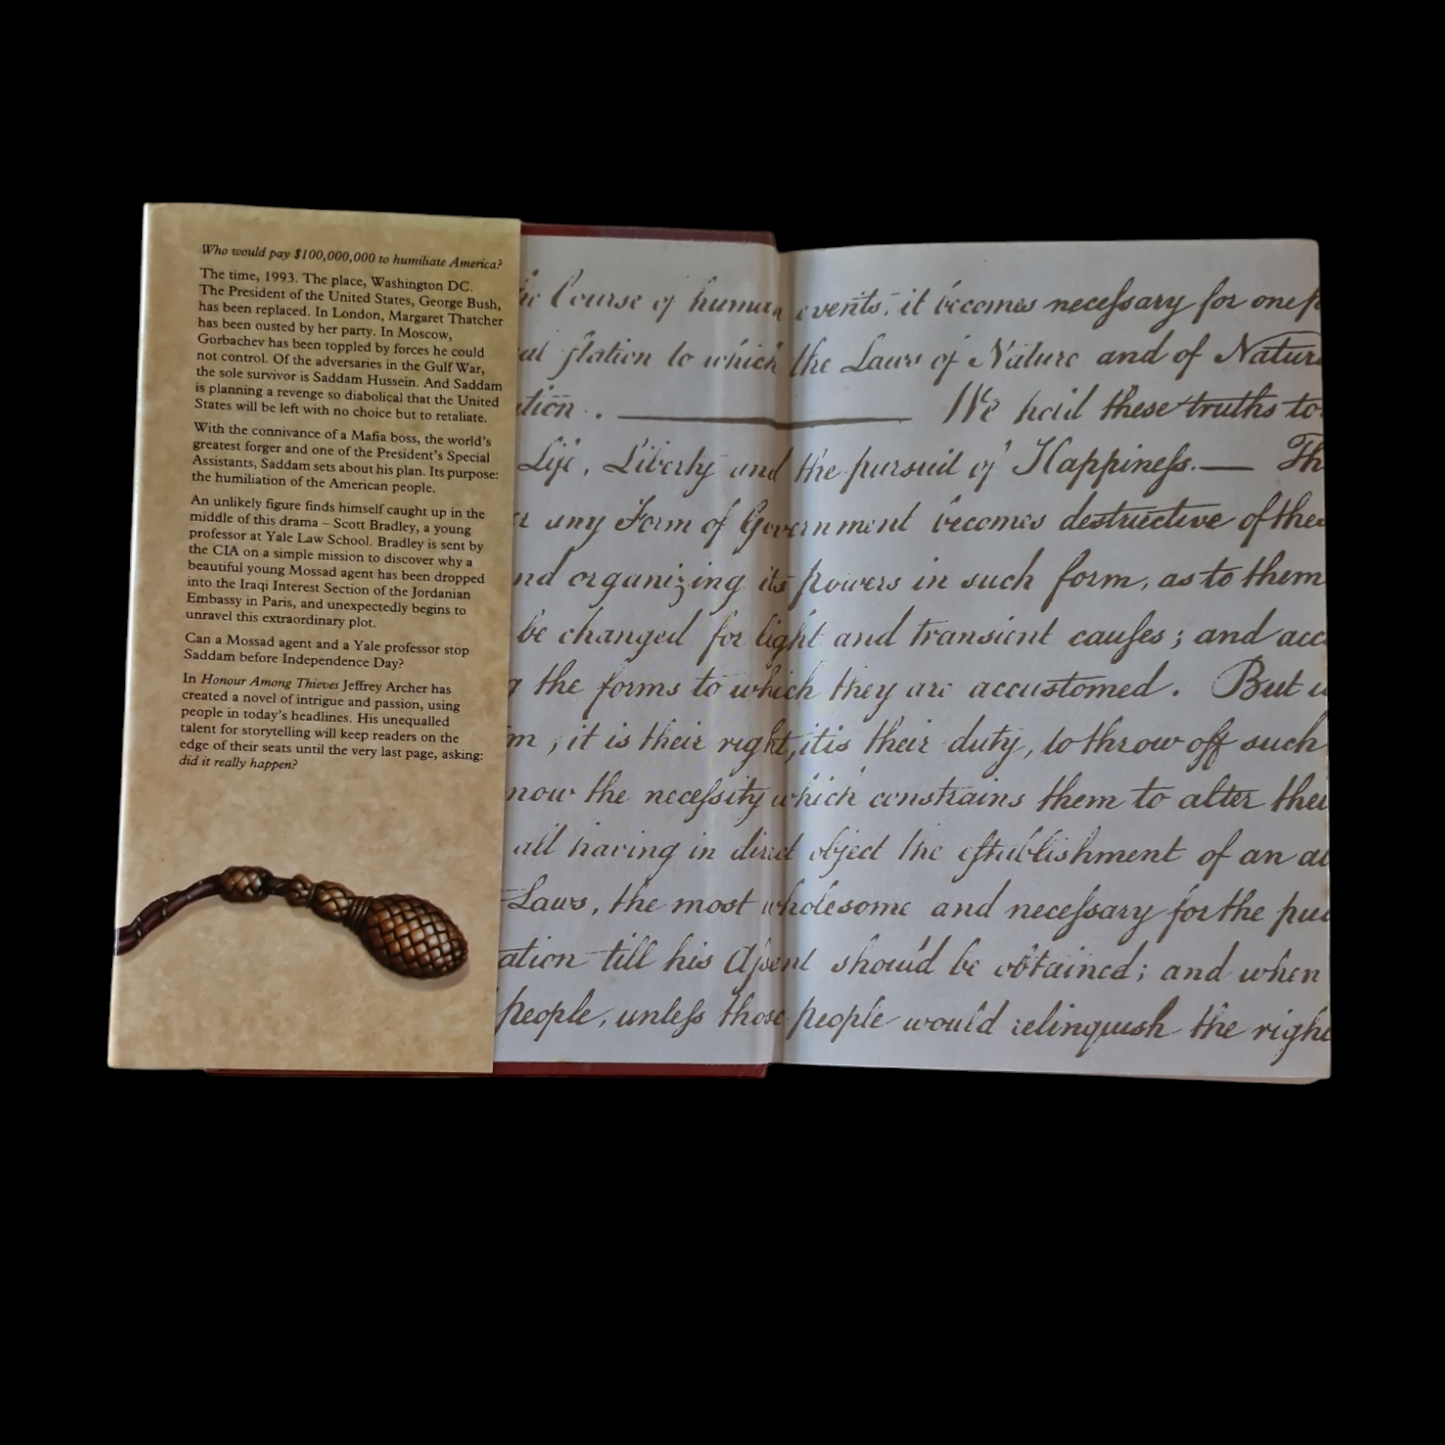 Who would pay $100,000,000 to humiliate America?
The time, 1993. The place, Washington DC.
The President of the United States, George Bush,
has been replaced. In London, Margaret Thatcher
has been ousted by her party. In Moscow,
Gorbachev has been toppled by forces he could
not control. Of the adversaries in the Gulf War,
the sole survivor is Saddam Hussein. And Saddam
is planning a revenge so diabolical that the United
States will be left with no choice but to retaliate.
With the connivance of a Mafia boss, the world's
greatest forger and one of the President's Special
Assistants, Saddam sets about his plan. Its purpose:
the humiliation of the American people.
An unlikely figure finds himself caught up in the
middle of this drama – Scott Bradley, a young
professor at Yale Law School. Bradley is sent by
the CIA on a simple mission to discover why a
beautiful young Mossad agent has been dropped
into the Iraqi Interest Section of the Jordanian
Embassy in Paris, and unexpectedly begins to
unravel this extraordinary plot.
Can a Mossad agent and a Yale professor stop
Saddam before Independence Day?
In Honour Among Thieves Jeffrey Archer has
created a novel of intrigue and passion, using
people in today's headlines. His unequalled
talent for storytelling will keep readers on the
edge of their seats until the very last page, asking:
did it really happen?
Course of human events, it becomes neceſsary for one
ſtation to which the Laws of Nature and of Natur
tion. We hold these truths to
Life, Liberty and the pursuit of Happineſs. — Th
any Form of Government becomes destructive of thes
nd organizing its powers in such form, as to them
be changed for light and transient cauſes; and acc
the forms to which they are accustomed. But
m, it is their right, it is their duty, to throw off such
now the neceſsity which constrains them to alter thei
all having in direct object the eſtabliſhment of an a
Laws, the most wholesome and neceſsary for the pu
ation till his Aſsent should be obtained; and when
people, unleſs those people would relinquish the right